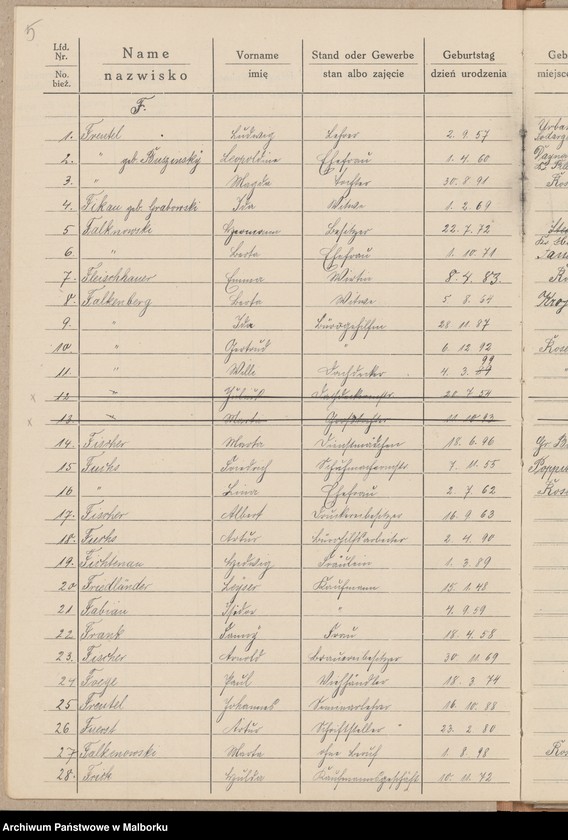 5
Lfd. Nr. Name Vorname Stand oder Gewerbe Geburtstag Geb
No. bież. nazwisko imię stan albo zajęcie dzień urodzenia miejsc
F.
1. Freutel Ludwig Lehrer 2. 9. 57
2. " geb. Leopoldine Ehefrau 1. 4. 60
3. " Magda Tochter 30. 8. 91
4. Fikau geb. Grabowski Ida Witwe 1. 2. 69
5 Falknowski Hermann Besitzer 22. 7. 72
6 " Berta Ehefrau 1. 10. 71
7. Fleischhauer Emma Wirtin 8. 4. 83.
8. Falkenberg Berta Witwe 5. 8. 64
9. " Ida Bürogehilfin 28 11. 87
10. " Gertrud " 6. 12 92
11. " Willi Dachdecker 4. 3. 99
12 "
13. " Marta 11. 10. 93
14. Fischer Marta Dienstmädchen 18. 6. 96
15 Fuchs Friedrich 7. 11. 55
16 " Lina Ehefrau 2. 7. 62
17. Fischer Albert Druckereibesitzer 16. 9 63
18. Fuchs Artur 2. 4. 90
19. Fichtenau Hedwig Fräulein 1. 3. 89
20 Friedländer Leyser Kaufmann 15. 1. 48
21 Fabian Isidor " 4. 9. 59
22 Frank Fanny Frau 18. 4. 58
23. Fischer Arnold Brauereibesitzer 30. 11. 69
24 Fuege Paul Viehhändler 18. 3 74
25 Freutel Johannes Seminarlehrer 16. 10. 88
26 Artur Schriftsteller 23. 2 80
27 Falkenowski Marta ohne Beruf 1. 8. 98
28. Hulda 10. 11. 72
Archiwum Państwowe w Malborku